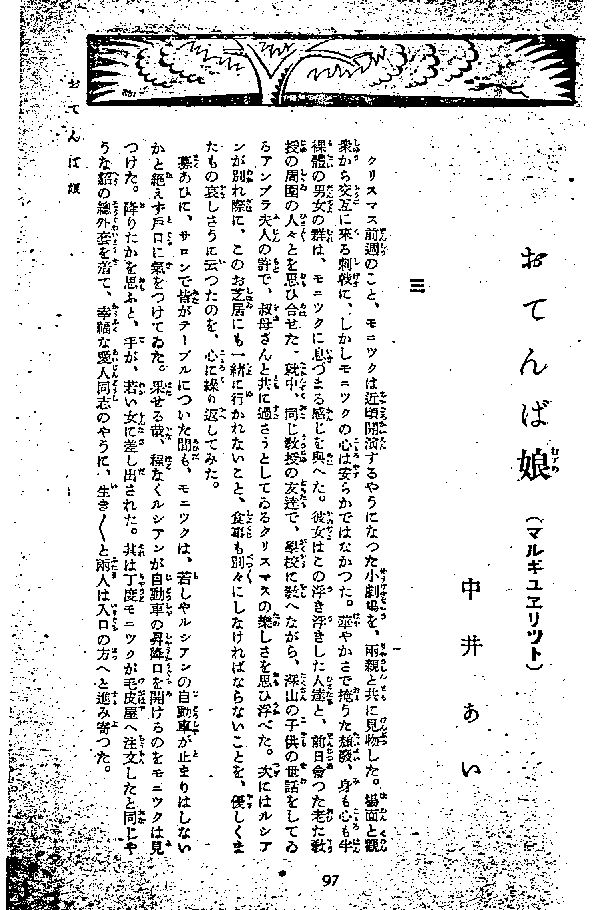 おてんば娘
(マルギユヱリツト)
中井あい
三
クリスマス前週のこと、モニツクは近頃開演するやうになつた小劇場を、兩親と共に見物した。場面と觀
衆から交互に來る刺戟に、しかしモニツクの心は安らかではなかつた。華やかさで掩うた頽廢、身も心も半
裸體の男女の群は、モニツクに息づまる感じを與へた。彼女はこの浮き浮きした人達と、前日會つた老た敎
授の周圍の人々とを思ひ合せた。就中、同じ敎授の友達で、學校に敎へながら、澤山の子供の世話をしてゐ
るアンブラ夫人の許で、叔母さんと共に過さうとしてゐるクリスマスの樂しさを思ひ浮べた。次にはルシア
ンが別れ際に、このお芝居にも一緒に行かれないこと、食事も別々にしなければならないことを、優しくま
たもの哀しさうに云つたのを、心に繰り返してみた。
幕あひに、サロンで皆がテーブルについた間も、モニツクは、若しやルシアンの自動車が止まりはしない
かと絕えず戶口に氣をつけてゐた。果せる哉、程なくルシアンが自動車の昇降口を開けるのをモニツクは見
つけた。降りたかを思ふと、手が、若い女に差し出された。其は丁度モニツクが毛皮屋へ注文したと同じや
うな貂の總外套を着て、幸福な愛人同志のやうに、生き〱と兩人は入口の方へと進み寄つた。
おてんば娘
97